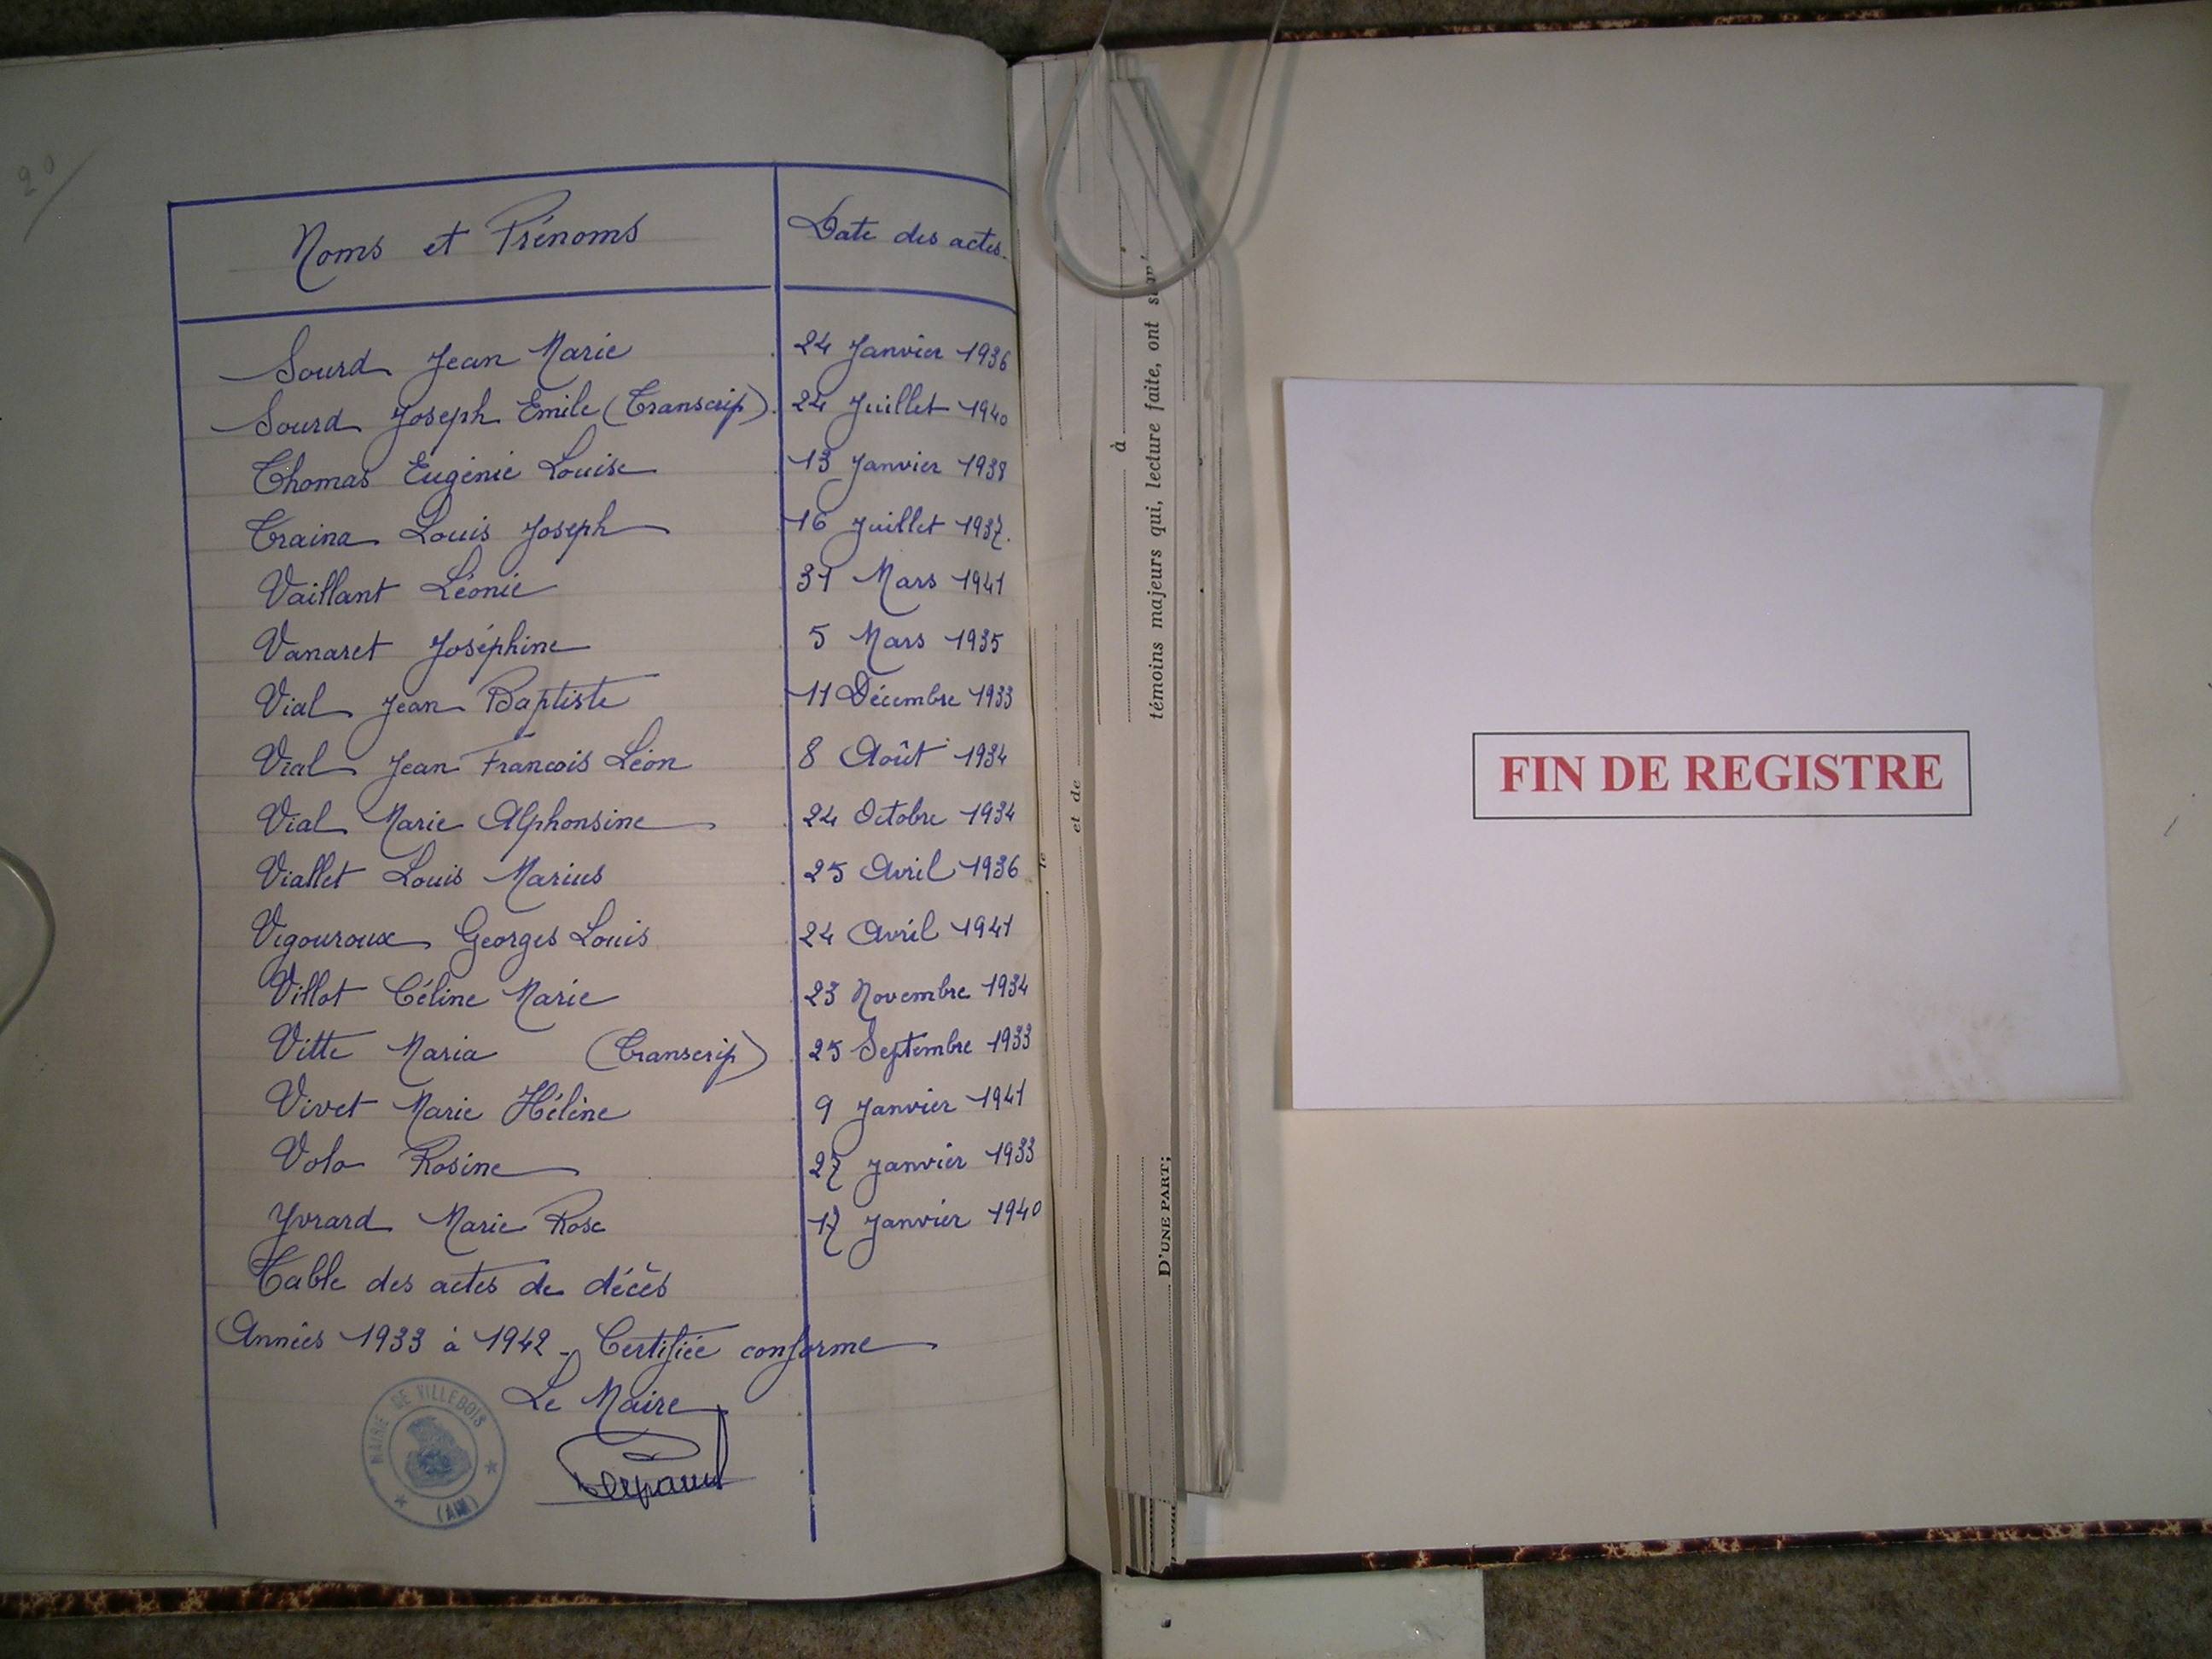 20
Noms et Prénoms Date des actes.
Sourd Jean Marie 24 Janvier 1936
Sourd Joseph Emile (Transcrip) 24 Juillet 1940
Thomas Eugénie Louise 13 Janvier 1938
Traina Louis Joseph 16 Juillet 1937.
Vaillant Léonie 31 Mars 1941
Vanaret Joséphine 5 Mars 1935
Vial Jean Baptiste 11 Décembre 1933
Vial Jean Francois Léon 8 Août 1934
Vial Marie Alphonsine 24 Octobre 1934
Viallet Louis Marius 25 Avril 1936
Vigouroux Georges Louis 24 Avril 1941
Villot Céline Marie 23 Novembre 1934
Vitte Maria (Transcrip) 25 Septembre 1933
Vivet Marie Hélène 9 Janvier 1941
Volo Rosine 27 Janvier 1933
Yvrard Marie Rose 17 Janvier 1940
Table des actes de décès
Années 1933 à 1942 - Certifiée conforme
Le Maire
MAIRIE DE VILLEBOIS
(AIN)
le
et de
à
témoins majeurs qui, lecture faite, ont
D'UNE PART;
FIN DE REGISTRE